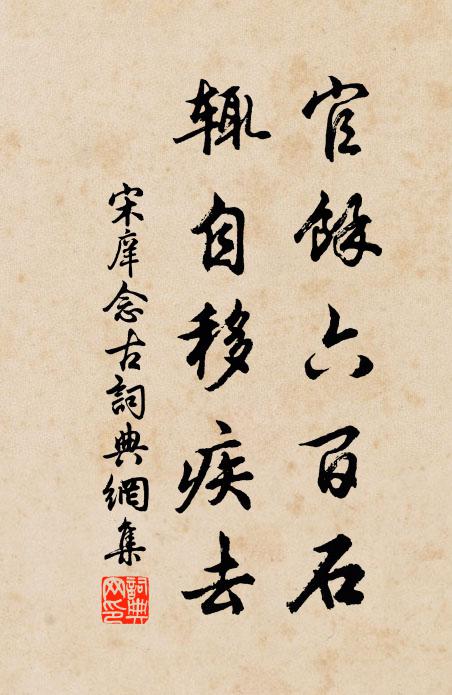 官餘六百石
輒自移疾去
宋庠念古詞典網集
詞典
网印